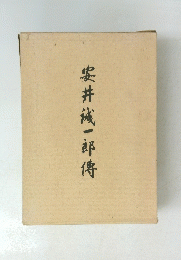 安井誠一郎傳